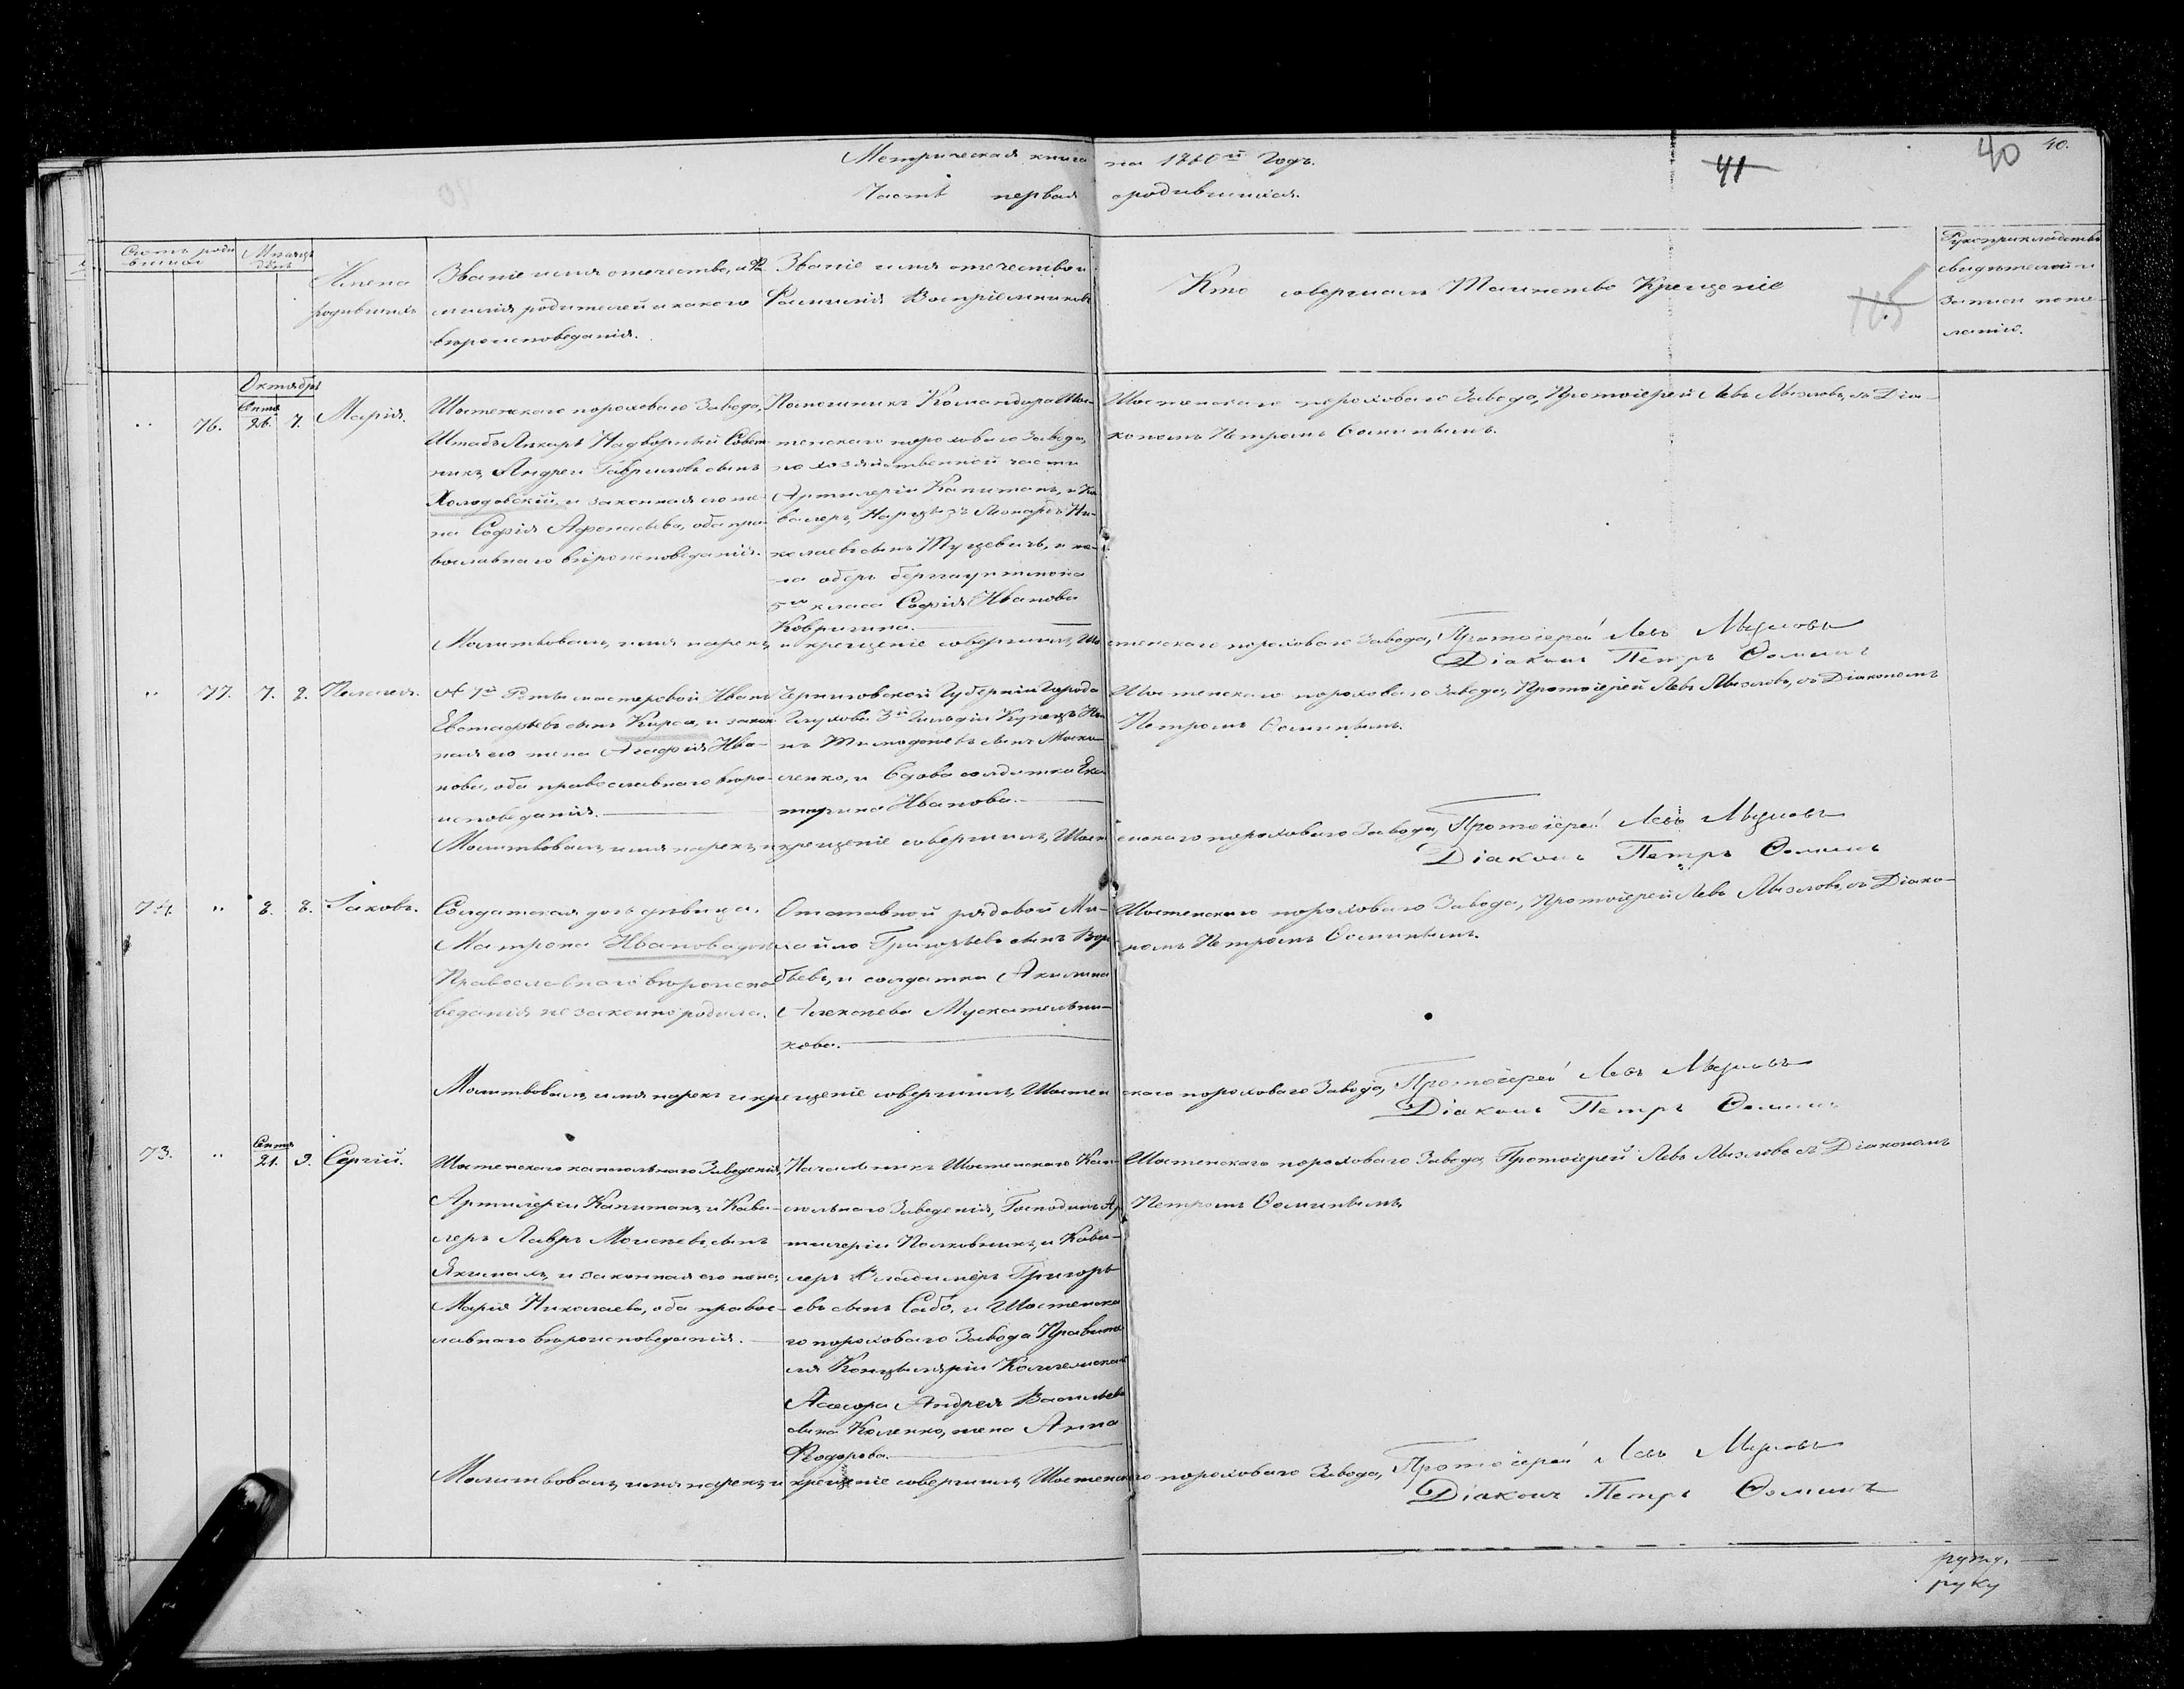 Метрическая книга на 1860й Годъ. 41 40 40.
Часть первая о родившихся.
Счетъ роди
вшихся
Мѣсяцъ
день
Имена
родившихъ
Званіе имя отечество, и Фа
милія родителей и какого
вѣроисповеданія.
Званіе имя отечество и
Фамилія Воспріемниковъ
Кто совершалъ Таинство Крещеніе
Рукоприкладство
свидѣтелей и
записи по же-
ланію.
Октябрь
Сентя
26. 7. Марія.
.. 76.
Шостенскаго пороховаго Завода,
Штабъ Лѣкарь Надворный Совет-
никъ Андрей Гавриловъ сынъ
Холодовскій, и законная его же-
на Софія Афонасьева, оба пра-
вославнаго вѣроисповеданія.
Помощникъ Командира Шос-
тенскаго пороховаго Завода,
по хозяйственной части
Артилеріи Капитанъ, и Ка
валеръ, Леонардъ Ни-
колаевъ сынъ и же-
на оберъ
5го класа Софія Иванова
Ковригина.
Шостенскаго пороховаго Завода, Протоіерей Левъ Мызловъ, съ Діа-
кономъ Петромъ Ѳоминымъ.
Молитвовалъ, имя нарекъ, и крещеніе совершилъ, Шостенскаго пороховаго Завода, Протоіерей Левъ Мызловъ
Діаконъ Петръ Ѳоминъ
.. 77. 7. 8. Пелагея.
№ 1й Роты мастеровой Иванъ
Евстафьевъ сынъ Курса, и закон
ная его жена Агафія Ива-
нова, оба православнаго вѣро-
исповеданія.
Черниговской Губерніи Города
Глухова 3й Гильдіи Купецъ Ива
нъ сынъ Моска-
ленко, и вдова солдатка Ека-
терина Иванова.
Шостенскаго пороховаго Завода, Протоіерей Левъ Мызловъ, съ Діакономъ
Петромъ Ѳоминымъ.
Молитвовалъ, имя нарекъ, и крещеніе совершилъ, Шостенскаго пороховаго Завода, Протоіерей Левъ Мызловъ
Діаконъ Петръ Ѳоминъ
74. .. 8. 8. Іаковъ.
Солдатская дочь дѣвица.
Матрона Иванова дочь
Православнаго вѣроиспо
веданія не законно родила.
Отставной рядовой Ми-
хайло Григорьевъ сынъ Воро
бьевъ, и солдатка Акилина
Алексѣева Мускательни-
кова.
Шостенскаго пороховаго Завода, Протоіерей Левъ Мызловъ, съ Діако-
номъ Петромъ Ѳоминымъ.
Молитвовалъ, имя нарекъ и крещеніе совершилъ, Шостенскаго пороховаго Завода, Протоіерей Левъ Мызловъ
Діаконъ Петръ Ѳоминъ
Сентя
73. .. 21. 9. Сергій.
Шостенскаго капсюльнаго Заведенія,
Артилеріи Капитанъ, и Кава-
леръ Лавръ Моисѣевъ сынъ
Якимахъ, и законная его жена,
Марія Николаева, оба правос-
лавнаго вѣроисповеданія.
Начальникъ Шостенскаго Кап-
сюльнаго Заведенія, Господинъ Ар
тилеріи Полковникъ, и Кава-
леръ Владиміръ Григорь
евъ сынъ Сабо, и Шостенска
го пороховаго Завода Правите
ля Канцеляріи Колежскаго
Асесора Андрея Васильева
сына Коленко, жена Анна
Ѳеодорова.
Шостенскаго пороховаго Завода, Протоіерей Левъ Мызловъ съ Діакономъ
Петромъ Ѳоминымъ.
Молитвовалъ, имя нарекъ, и крещеніе совершилъ, Шостенскаго пороховаго Завода, Протоіерей Левъ Мызловъ
Діаконъ Петръ Ѳоминъ
руку